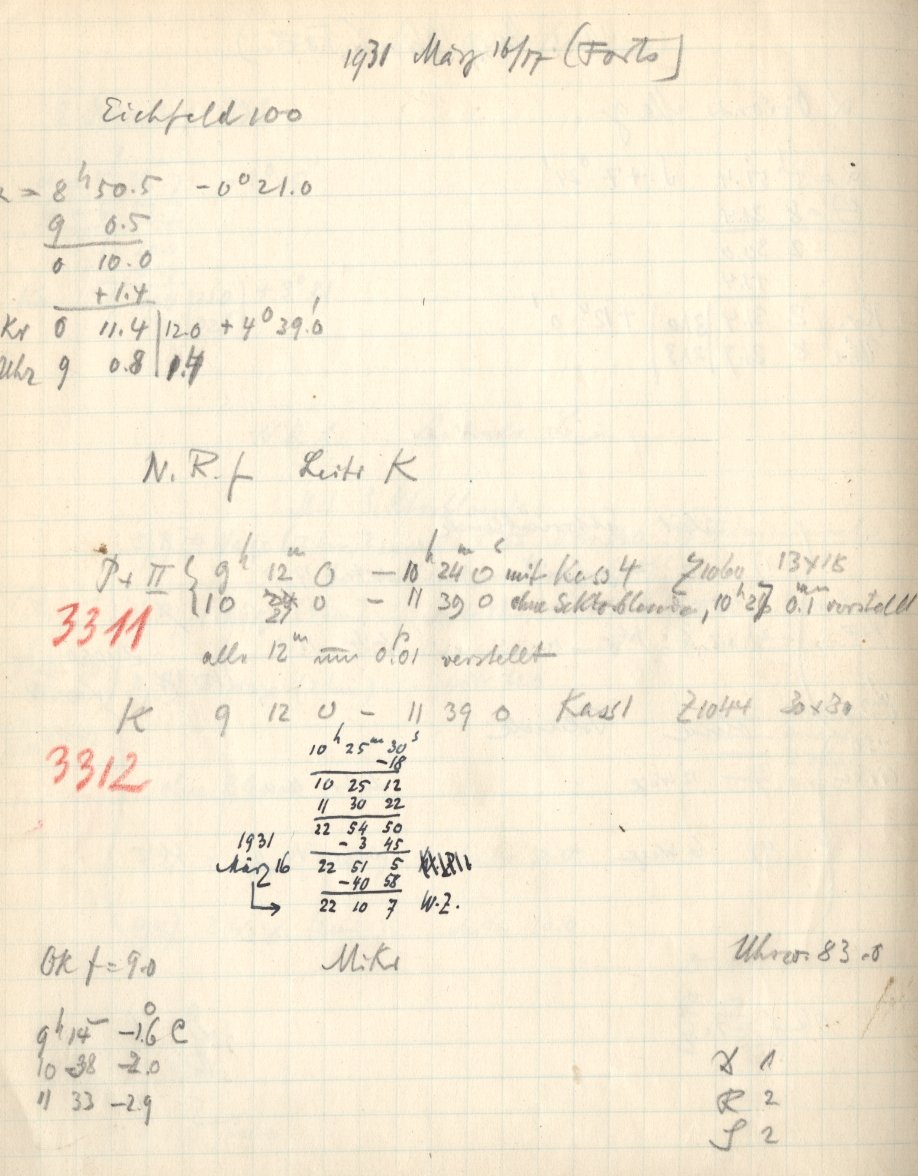 1931 März 16/17 (Forts)
Eichfeld 100
= 8h 50.5 -0° 21.0
9 0.5
0 10.0
+1.4
Kr 0 11.4 | 12.0 +4° 39.0'
Uhr 9 0.8 | 1.4
N. R. f Leitr K
P+II { 9h 12m 0 - 10h 24m 0s mit Kass 4 Z1060 13x18
10 27 0 - 11 39 0 ohne 10h 27 0.1mm verstellt
3311
alle 12m um 0.01 verstellt
K 9 12 0 - 11 39 0 Kass 1 Z1044 30x30
3312
10h 25m 30s
-18
10 25 12
11 30 22
22 54 50
1931 - 3 45
März 16 22 51 5
-40 58
22 10 7 W.Z.
OK f = 9.0 Mikr Uhrw. 83.8
9h 14 -1.6° C
10 38 -2.0
11 33 -2.9
D 1
R 2
S 2